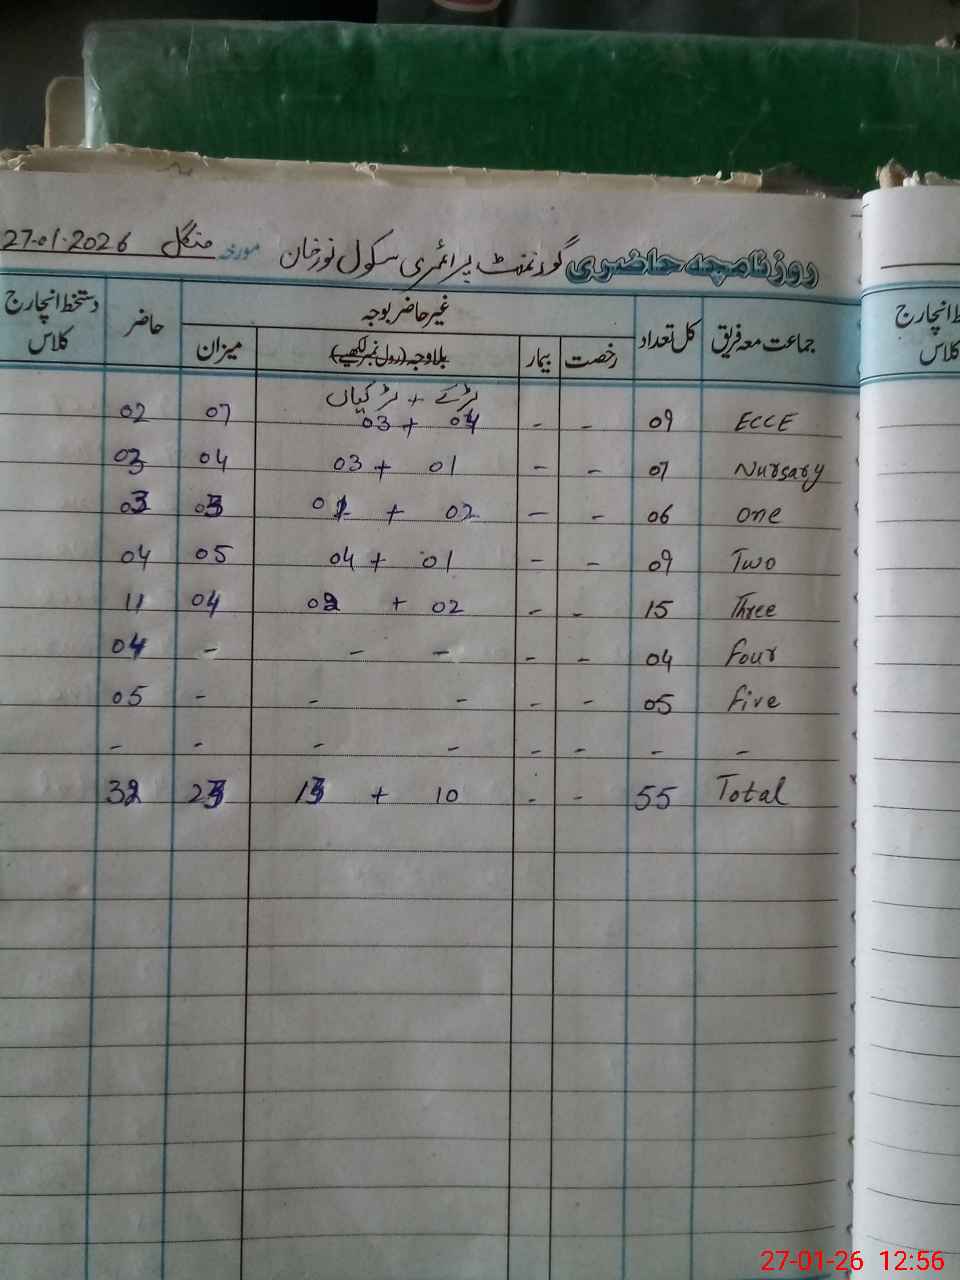 روزنامچہ حاضری گورنمنٹ پرائمری سکول نورخان مورخہ منگل 27-01-2026
جماعت معہ فریق کل تعداد غیر حاضر بوجہ حاضر دستخط انچارج کلاس
رخصت بیمار بلاوجہ (رول نمبر لکھیے) میزان
لڑکے + لڑکیاں
ECCE 09 - - 04 + 03 07 02
Nursary 07 - - 01 + 03 04 03
One 06 - - 02 + 01 03 03
Two 09 - - 01 + 04 05 04
Three 15 - - 02 + 02 04 11
Four 04 - - - - - 04
Five 05 - - - - - 05
- - - - - - - -
Total 55 - - 10 + 13 23 32
انچارج
کلاس
27-01-26 12:56